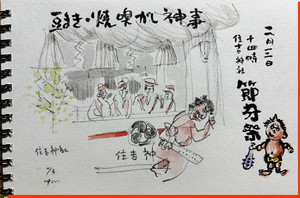 二月三日
十四時
住吉神社
節分祭
豆まき・焼嗅がし神事
住吉神
住吉神社